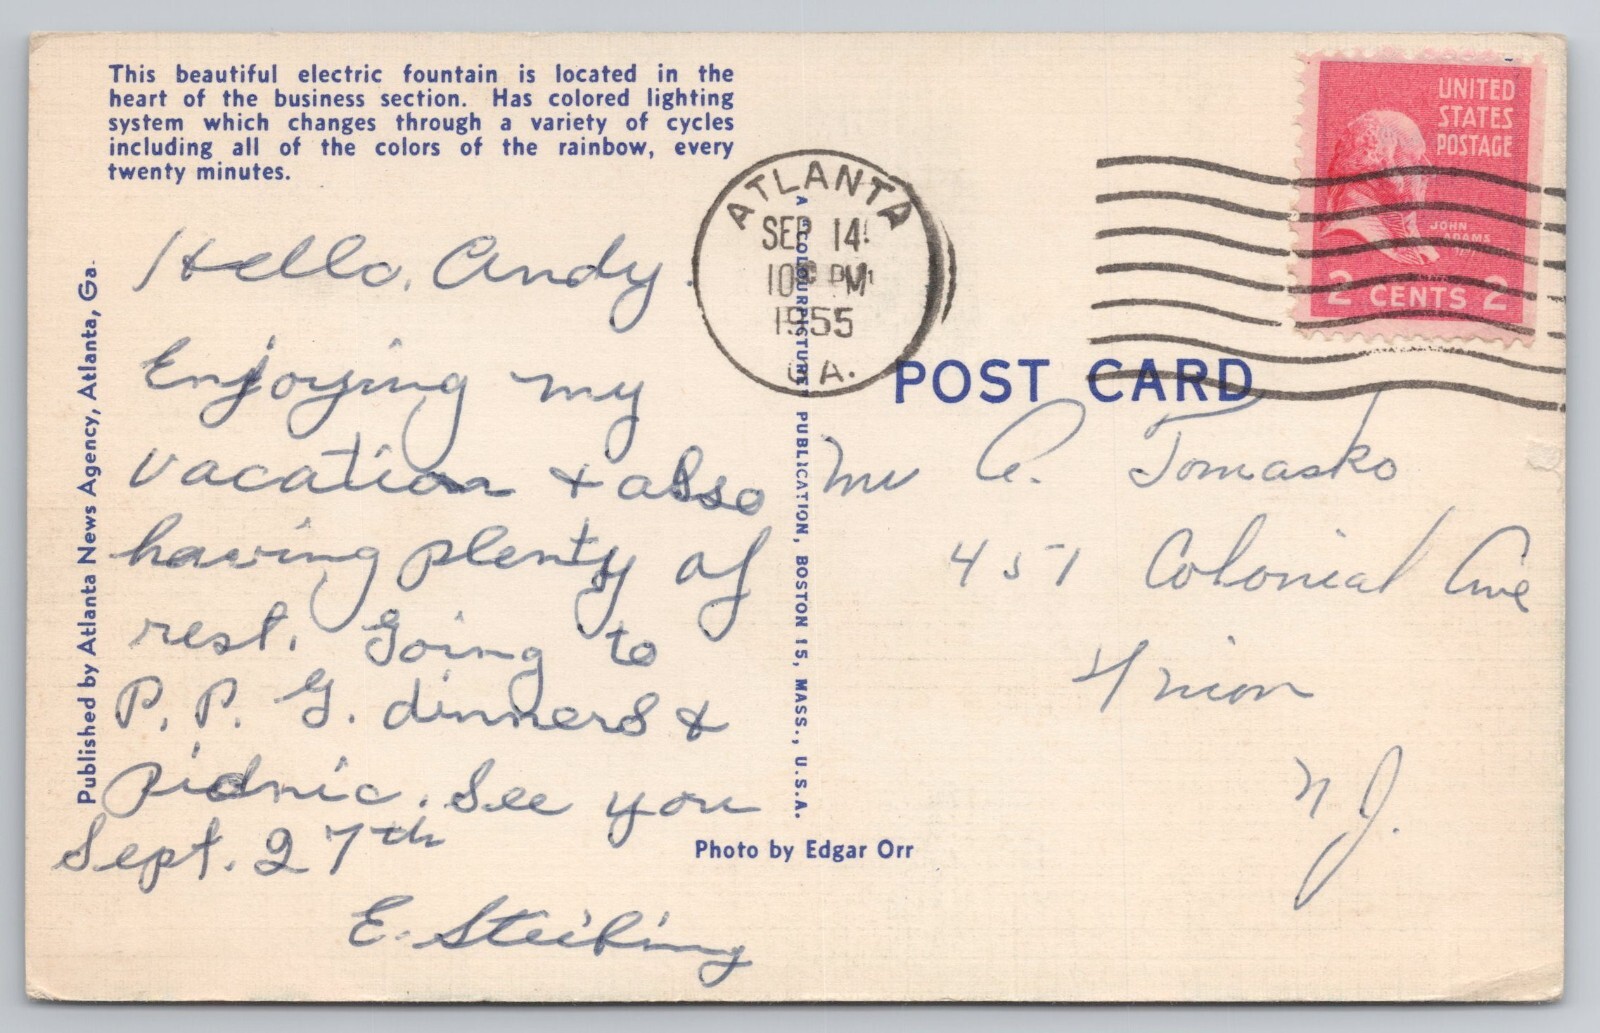 This beautiful electric fountain is located in the
heart of the business section. Has colored lighting
system which changes through a variety of cycles
including all of the colors of the rainbow, every
twenty minutes.
Published by Atlanta News Agency, Atlanta, Ga.
Hello, Andy.
Enjoying my
vacation & also
having plenty of
rest. Going to
P. P. G. dinners &
picnic. See you
Sept. 27th
E.
ATLANTA
SEP 14
10 PM
1955
GA.
A "COLOURPICTURE" PUBLICATION, BOSTON 15, MASS., U.S.A.
Photo by Edgar Orr
UNITED
STATES
POSTAGE
JOHN
ADAMS
2 CENTS 2
POST CARD
Mr A. Tomasko
451 Colonial Ave
Union
N.J.